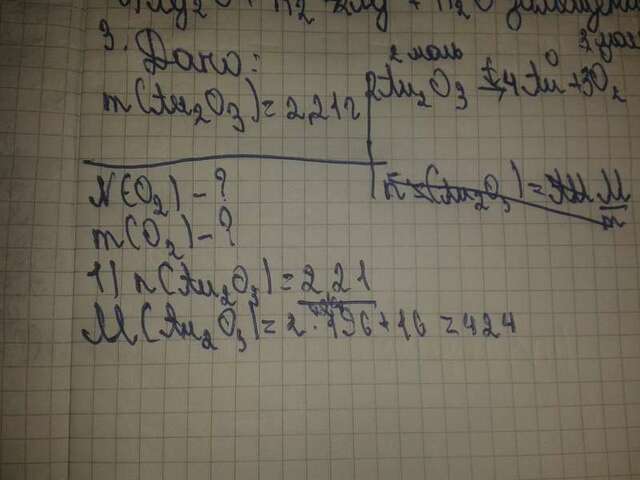 3. Дано:
m(Au₂O₃) = 2,21г
2 моль 3 мол
2Au₂O₃ = 4Au + 3O₂
N(O₂) - ?
m(O₂) - ?
1) n(Au₂O₃) = 2,21
M(Au₂O₃) = 2 · 196 + 16 = 424